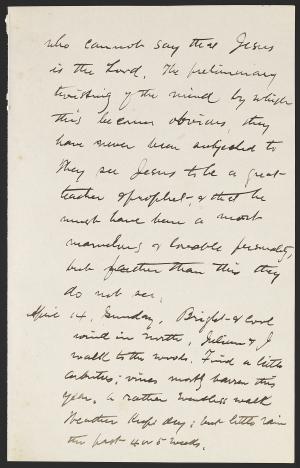 who cannot say that Jesus
is the Lord. The preliminary
twisting of the mind by which
this becomes obvious, they
have never been subjected to
They see Jesus to be a great
teacher & prophet, & that he
must have been a most
marvelous & lovable personality,
but farther than this they
do not see.
April 14. Sunday. Bright & cool
wind in north, Julian & I
walk to the woods. Find a little
arbutus; vines mostly barren this
year. A rather
walk
Weather keeps dry; but little rain
the past 4 or 5 weeks.